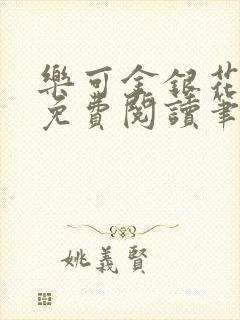 樂可金銀花
免費閱讀筆
姚義賢